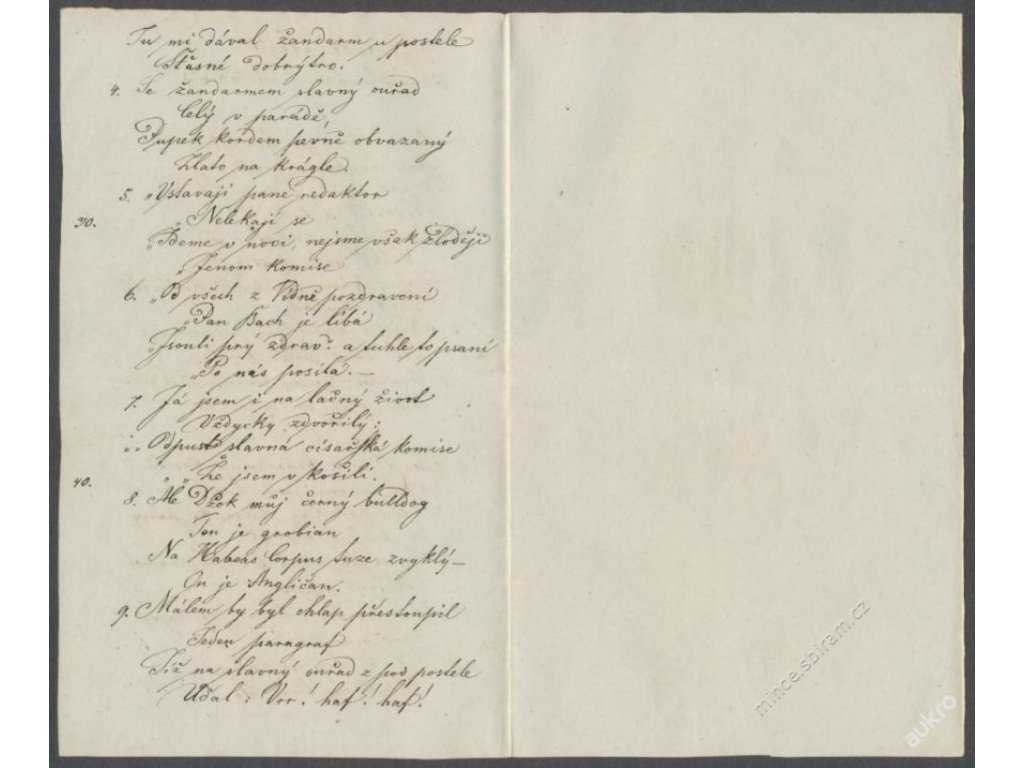 Tu mi dával žandarm u postele
Štasné dobrýtro.
4. Se žandarmem slavný ouřad
Celý v parádě,
Pupek kordem pevně obvazaný
Zlato na krágle.
5. „Vstavaji pane redaktor
30. „Nelekaji se
„Deme v noci, nejsme však zloději
„Jenom komise
6. „Od všech z Vidně pozdravení
„Pan Bach je líbá
„Jsouli prý zdravi. a tuhle to psaní
„Po nás posila. —
7. Já jsem i na lačný život
Vždycky zdvořilý:
„Odpustí slavná císařská komise
40. „Že jsem v košili.
8. Ale Džok můj černý bulldog
Ten je grobian
Na Habeas Corpus tuze zvyklý —
On je Angličan.
9. Málem by byl chlap přestoupil
Jeden paragraf
Již na slavný ouřad z pod postele
Udal: Vrr! haf! haf!
mince.sbiram.cz
aukro